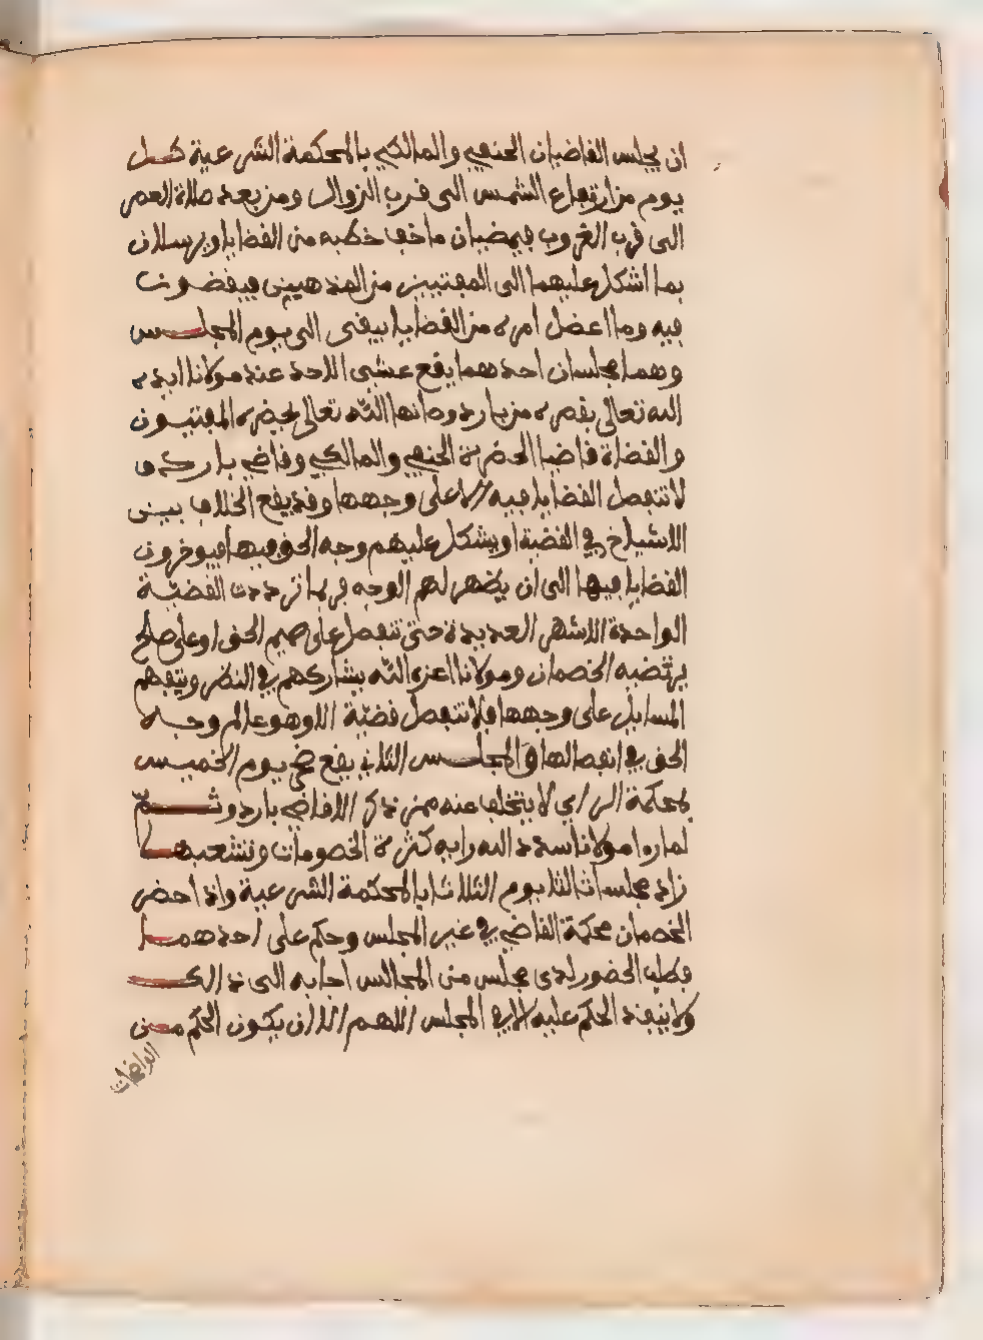 ان يجلس القاضيان الحنفي والمالكي بالمحكمة الشرعية كل
يوم من ارتفاع الشمس الى قرب الزوال ومن بعد صلاة العصر
الى قرب الغروب فيمضيان ما خف خطبه من القضايا ويرسلان
بما اشكل عليهما الى المفتيين من المذهبين فيقضون
فيه وما اعضل امره من القضايا يبقى الى يوم المجلس
وهما مجلسان احدهما يقع عشي الاحد عند مولانا ايده
الله تعالى بقصره من باردو صانها الله تعالى يحضره المفتيون
والقضاة قاضيا الحضرة الحنفي والمالكي وقاضي باردو
لا تنفصل القضايا فيه الا على وجهها وقد يقع الخلاف بين
الاشياخ في القضية او يشكل عليهم وجه الحق فيها فيوخرون
القضايا فيها الى ان يظهر لهم الوجه فربما ترددت القضية
الواحدة الاشهر العديدة حتى تنفصل على صميم الحق او على صلح
يرتضيه الخصمان ومولانا اعزه الله يشاركهم في النظر ويتفهم
المسايل على وجهها فلا تنفصل قضية الا وهو عالم وجه
الحق في انفصالها والمجلس الثاني يقع ضحى يوم الخميس
بمحكمة الراي لا يتخلف عنه ممن ذكر الا قاضي باردو ثم
لما را مولانا سدد الله رايه كثرة الخصومات وتشعبها
زاد مجلسا ثالثا يوم الثلاثا بالمحكمة الشرعية واذا حضر
الخصمان محكمة القاضي في غير المجلس وحكم على احدهما
فطلب الحضور لدى مجلس من المجالس اجابه الى ذالك
ولا ينفذ الحكم عليه الا في المجلس اللهم الا ان يكون الحكم من
الواضحات